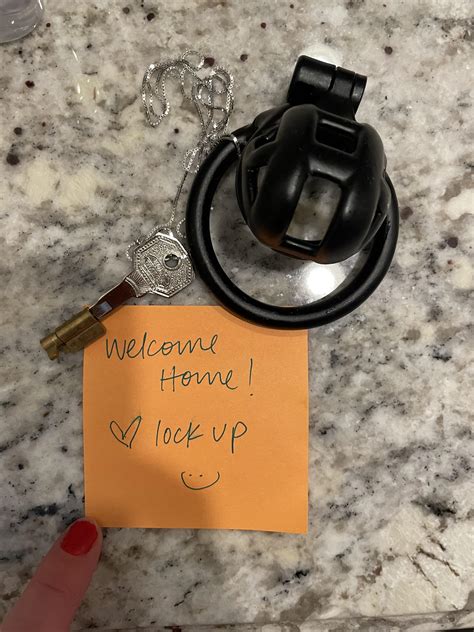 Welcome
Home!
♡ lock up